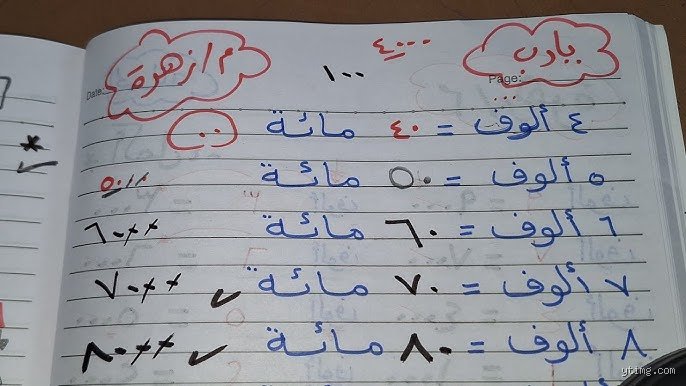 يارب
٤٠٠٠
م/ زهرة
Page:
١٠٠
Date:
٤ ألوف = ٤٠ مائة ٠٠
٥ ألوف = ٥٠ مائة ٥٠٠٠
٦ ألوف = ٦٠ مائة ٦٠٠٠
٧ ألوف = ٧٠ مائة ✓ ٧٠٠٠
٨ ألوف = ٨٠ مائة ✓ ٨٠٠٠
ytimg.com